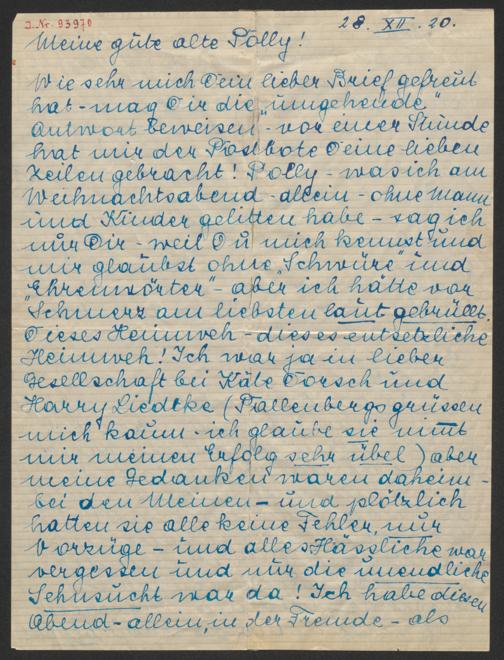 I.Nr. 93970
28. XII. 20.
Meine gute alte Polly!
Wie sehr mich Dein lieber Brief gefreut
hat - mag Dir die "umgehende"
Antwort beweisen - vor einer Stunde
hat mir der Postbote Deine lieben
Zeilen gebracht! Polly - was ich am
Weihnachtsabend - allein - ohne Mann
und Kinder gelitten habe - sag ich
nur Dir - weil Du mich kennst und
mir glaubst ohne "Schwüre" und
"Ehrenwörter" - aber ich hätte vor
Schmerz am liebsten laut gebrüllt.
Dieses Heimweh - dieses entsetzliche
Heimweh! Ich war ja in lieber
Gesellschaft bei Käte Dorsch und
Harry Liedtke (Pallenbergs grüssen
mich kaum - ich glaube sie nimt
mir meinen Erfolg sehr übel) aber
meine Gedanken waren daheim -
bei den Meinen - und plötzlich
hatten sie alle keine Fehler, nur
Vorzüge - und alles Hässliche war
vergessen und nur die unendliche
Sehnsucht war da! Ich habe diesen
Abend - allein, in der Fremde - als